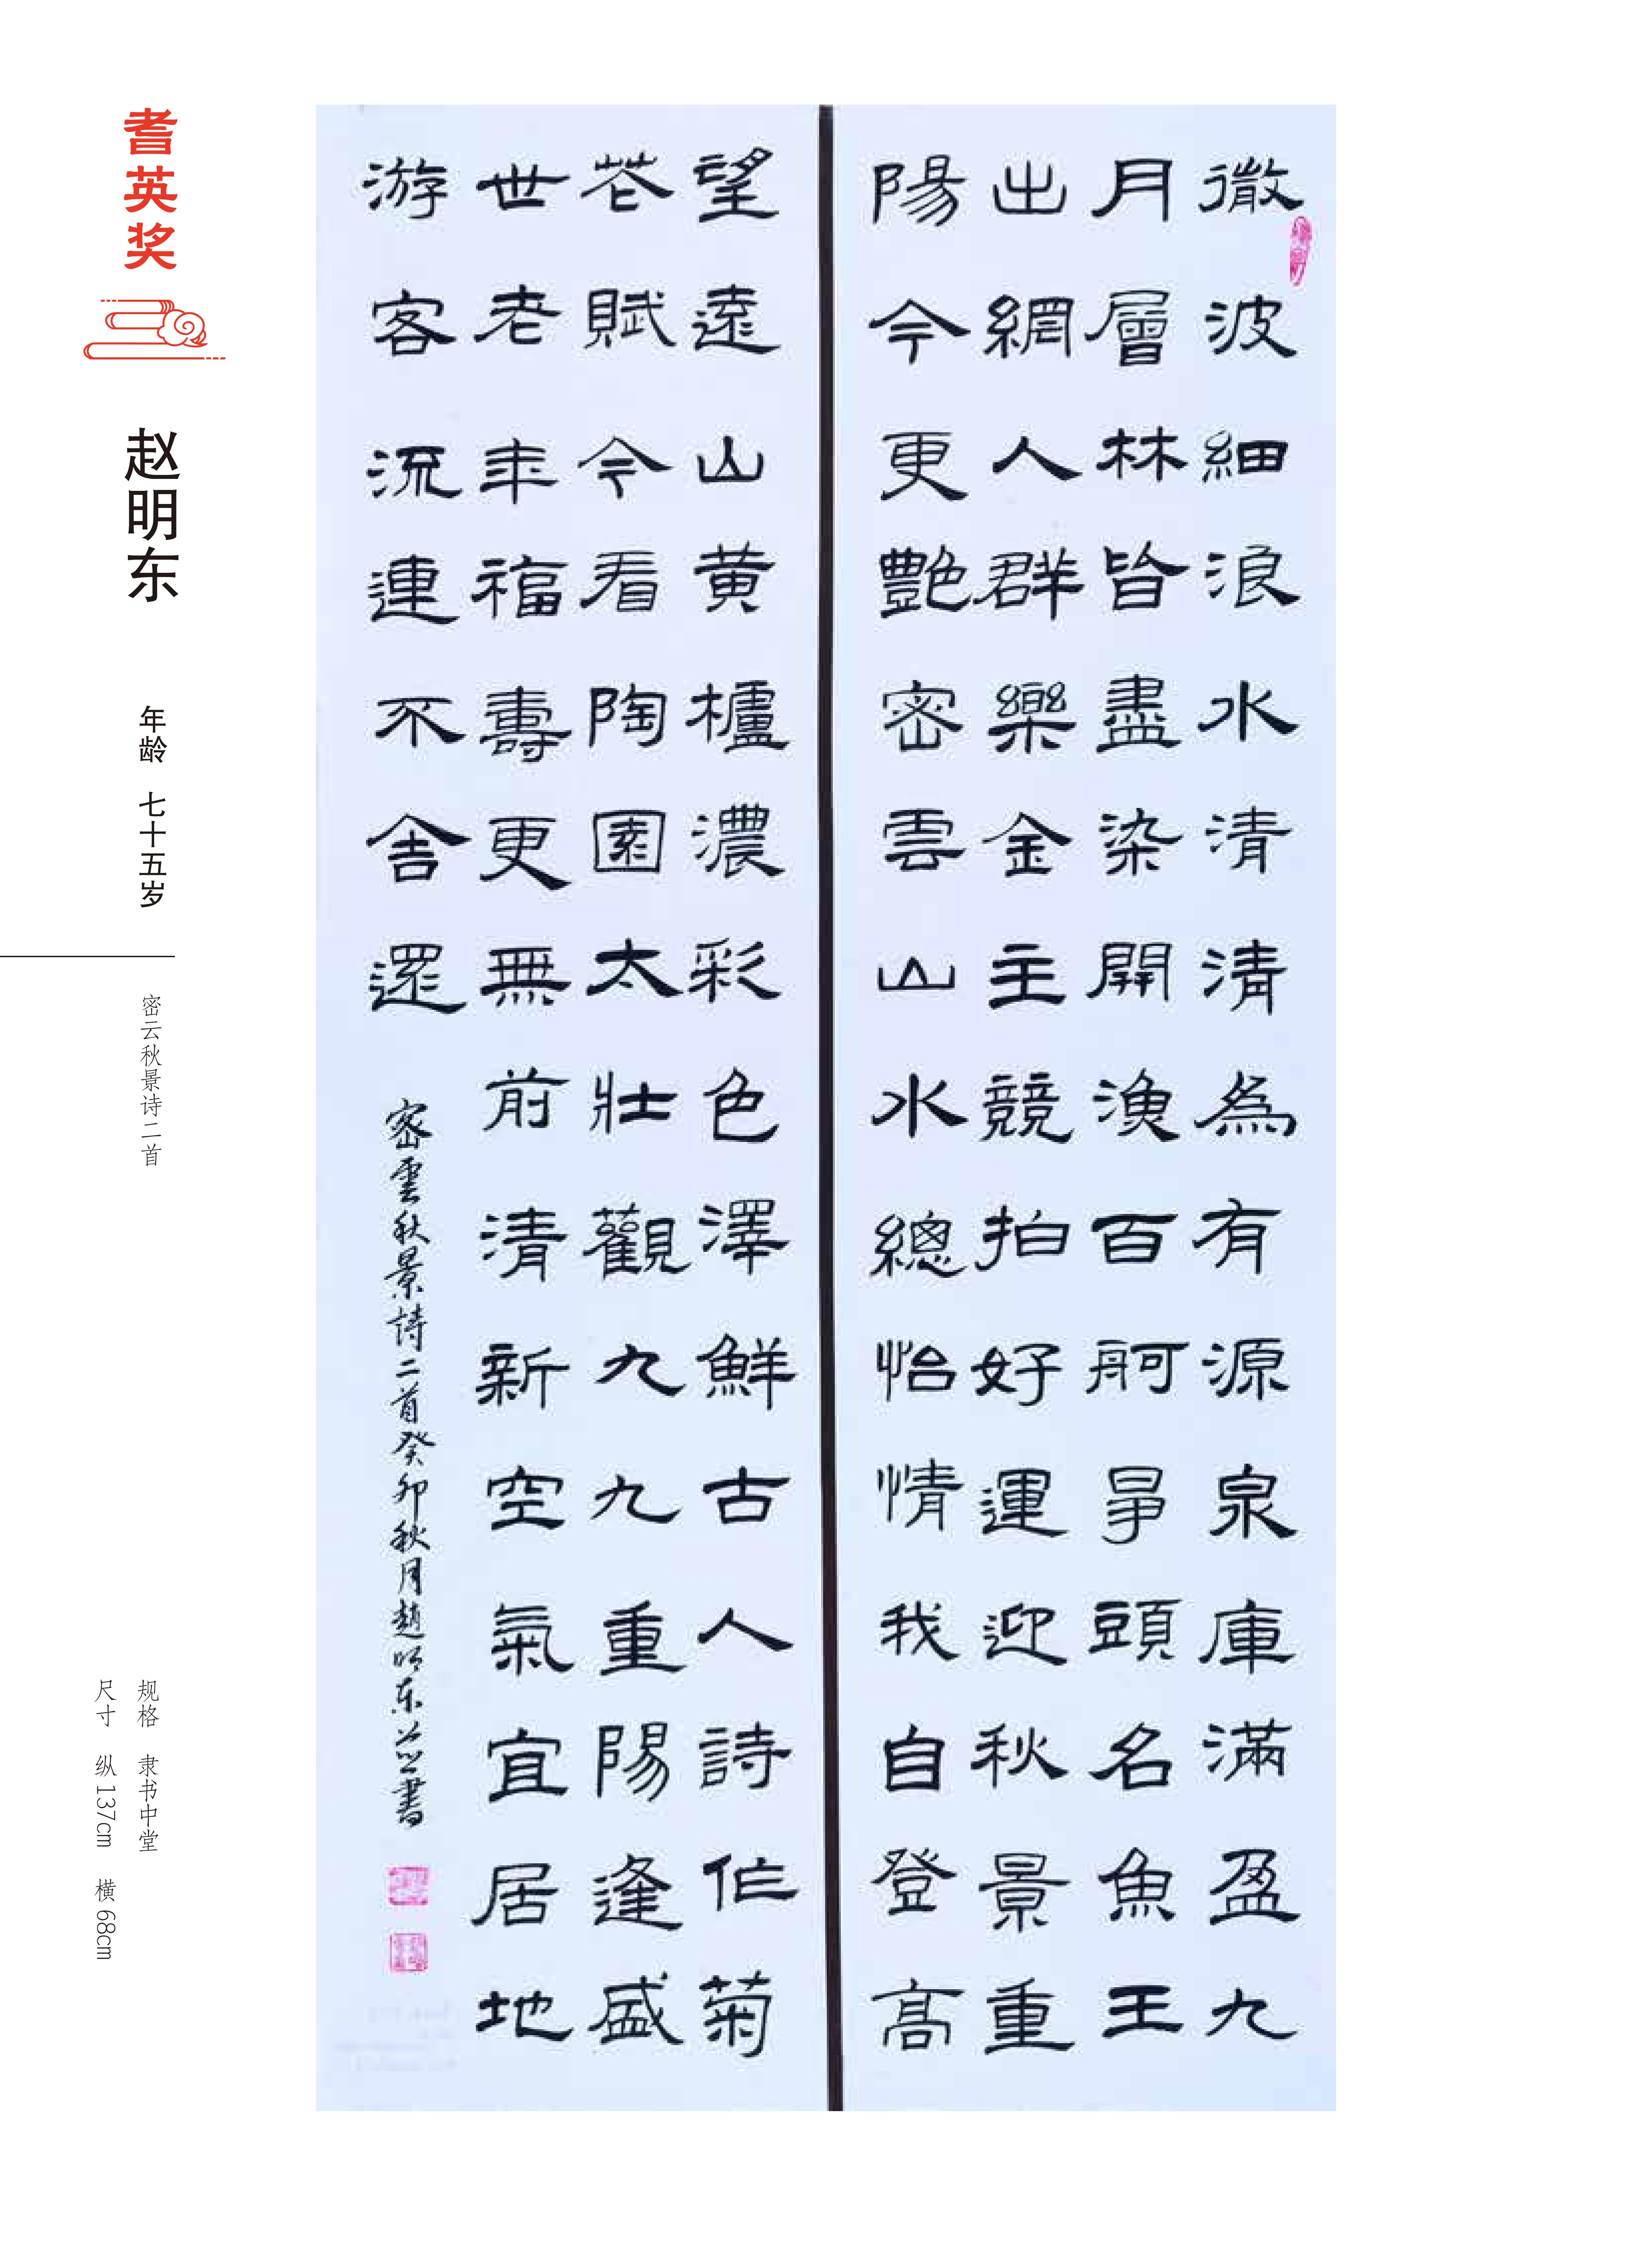 耆英奖
赵明东
年龄 七十五岁
密云秋景诗二首
规格 隶书中堂
尺寸 纵137cm 横68cm
微波細浪水清清為有源泉庫滿盈九
月層林皆盡染開漁百舸爭頭名魚王
出網人群樂金主競拍好運迎秋景重
陽今更艷密雲山水總怡情我自登高
望遠山黄櫨濃彩色澤鮮古人詩作菊
花賦今看陶園太壯觀九九重陽逢盛
世老年福壽更無前清新空氣宜居地
游客流連不舍還
密雲秋景詩二首癸卯秋月趙明东並書